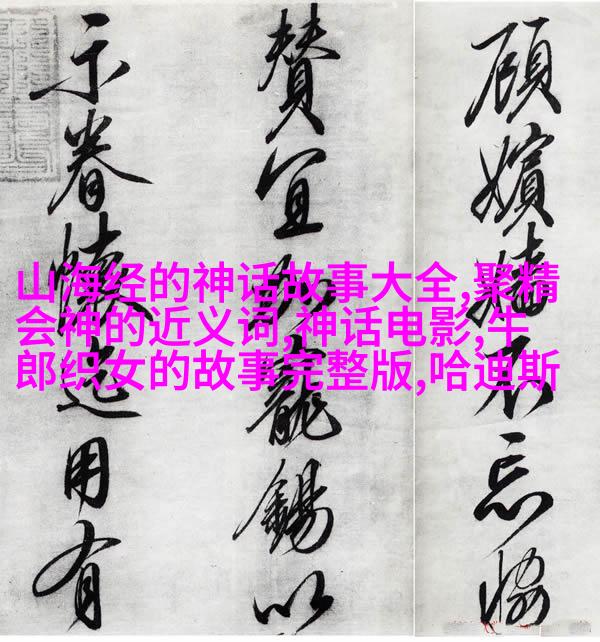 山海经的神话故事大全,聚精
会神的近义词,神话电影,牛
郎织女的故事完整版,哈迪斯
顧嬪嬙不忘恊
賛宜寵錫以
示眷懷是用有